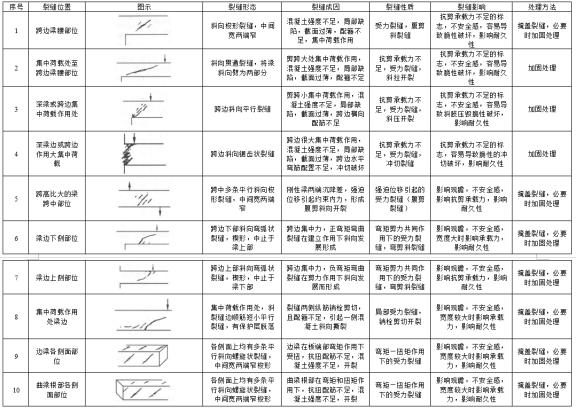 序号 裂缝部位 图示 裂缝形态 裂缝成因 裂缝性质 裂缝影响 处理方法
1 跨边梁腰部位 斜向梭形裂缝，中间宽两端窄 混凝土强度不足，局部缺陷，截面过薄，配箍不足，集中荷载作用 受力裂缝，腹剪斜裂缝 抗剪承载力不足的标志，不安全感，容易导致脆性破坏，影响耐久性 掩盖裂缝，必要时加固处理
2 集中荷载处至跨边梁腰部位 斜向贯通裂缝，将梁斜向劈为两部分 剪跨大处集中荷载作用，混凝土强度不足，局部缺陷，截面过薄，配箍不足 抗剪承载力不足，受力裂缝，斜拉开裂 抗剪承载力不足的标志，不安全感，容易导致脆性破坏，影响耐久性 加固处理
3 深梁或跨边集中荷载作用处 跨边斜向平行裂缝 剪跨小集中荷载作用，混凝土强度不足，局部缺陷，截面过薄，跨边横向配筋不足 抗剪承载力不足，受力裂缝，斜压开裂 抗剪承载力不足的标志，不安全感，容易导致斜压毁脆性破坏，影响耐久性 加固处理
4 深梁边或跨边作用大集中荷载 跨边斜向锯齿状裂缝 跨边很大集中荷载作用，混凝土强度不足，局部缺陷，截面过薄，跨边水平弯筋配置不足，冲切破坏 抗剪承载力不足，受力裂缝，冲切裂缝 抗剪承载力不足的标志，容易导致脆性的冲切破坏，影响耐久性 加固处理
5 跨高比大的梁跨中部位 跨中多条平行斜向梭形裂缝，中间宽两端窄 刚性梁两端沉降差，强迫位移引起约束内力，形成腹剪斜向开裂 强迫位移引起的受力裂缝（腹剪裂缝） 影响观瞻，不安全感，影响抗剪承载力，影响耐久性 掩盖裂缝，必要时加固处理
6 梁边下侧部位 跨边下部斜向弯弧状裂缝，楔形，中止于梁上部 跨边集中力，正弯矩弯曲裂缝在建立作用下斜向发展形成 弯矩剪力共同作用下的受力裂缝，弯剪斜裂缝 影响观瞻，不安全感，宽度大时影响承载力，影响耐久性 掩盖裂缝，必要时加固处理
7 梁边上侧部位 跨边上部斜向弯弧状裂缝，楔形，中止于梁下部 跨边集中力，负弯矩弯曲裂缝在剪力作用下斜向发展而形成 弯矩剪力共同作用下的受力裂缝，弯剪斜裂缝 影响观瞻，不安全感，影响抗剪承载力，影响耐久性 掩盖裂缝，必要时加固处理
8 集中荷载作用处梁边 集中荷载作用处，斜裂缝边顺筋短小平行裂缝，有保护层脱落 裂缝两侧纵筋销栓剪切，且配箍不足，引起一侧混凝土斜向撕裂 局部受力裂缝，销栓剪切开裂 影响观瞻，不安全感，宽度较大时影响承载力，影响耐久性 掩盖裂缝，必要时加固处理
9 边梁各侧面部位 各侧面上均有多条平行斜向螺旋状裂缝，中间宽两端窄梭形 边梁在板端部弯矩作用下受扭，抗扭配筋不足，混凝土强度不足，开裂 弯矩一扭矩作用下的受力裂缝 影响观瞻，不安全感，宽度较大时影响承载力，影响耐久性 掩盖裂缝，必要时加固处理
10 曲梁根部各侧面部位 各侧面上均有多条平行斜向螺旋状裂缝，中间宽两端窄梭形 曲梁根部在弯矩和扭矩作用下，抗扭配筋不足，混凝土强度不足，开裂 弯矩一扭矩作用下的受力裂缝 影响观瞻，不安全感，宽度较大时影响承载力，影响耐久性 掩盖裂缝，必要时加固处理